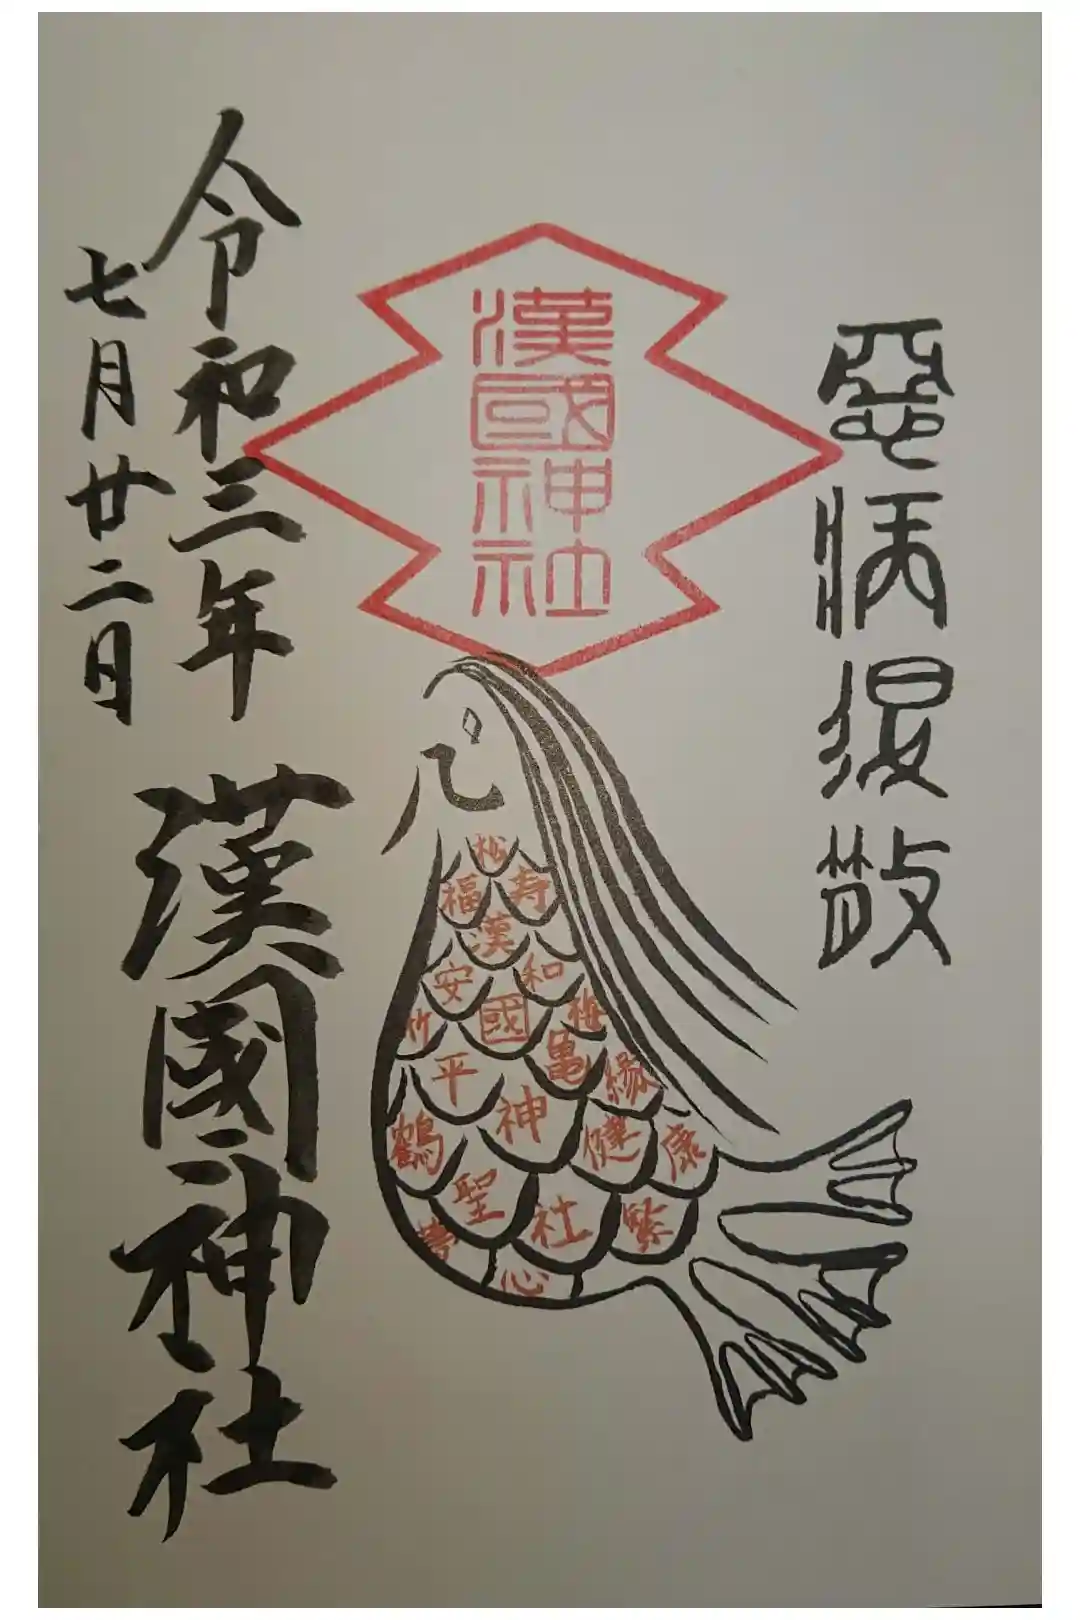 惡病退散
漢國神社
松
福
寿
漢
安
和
竹
國
梅
平
亀
縁
鶴
神
健
康
聖
社
繁
夢
心
令和三年
七月廿二日
漢國神社